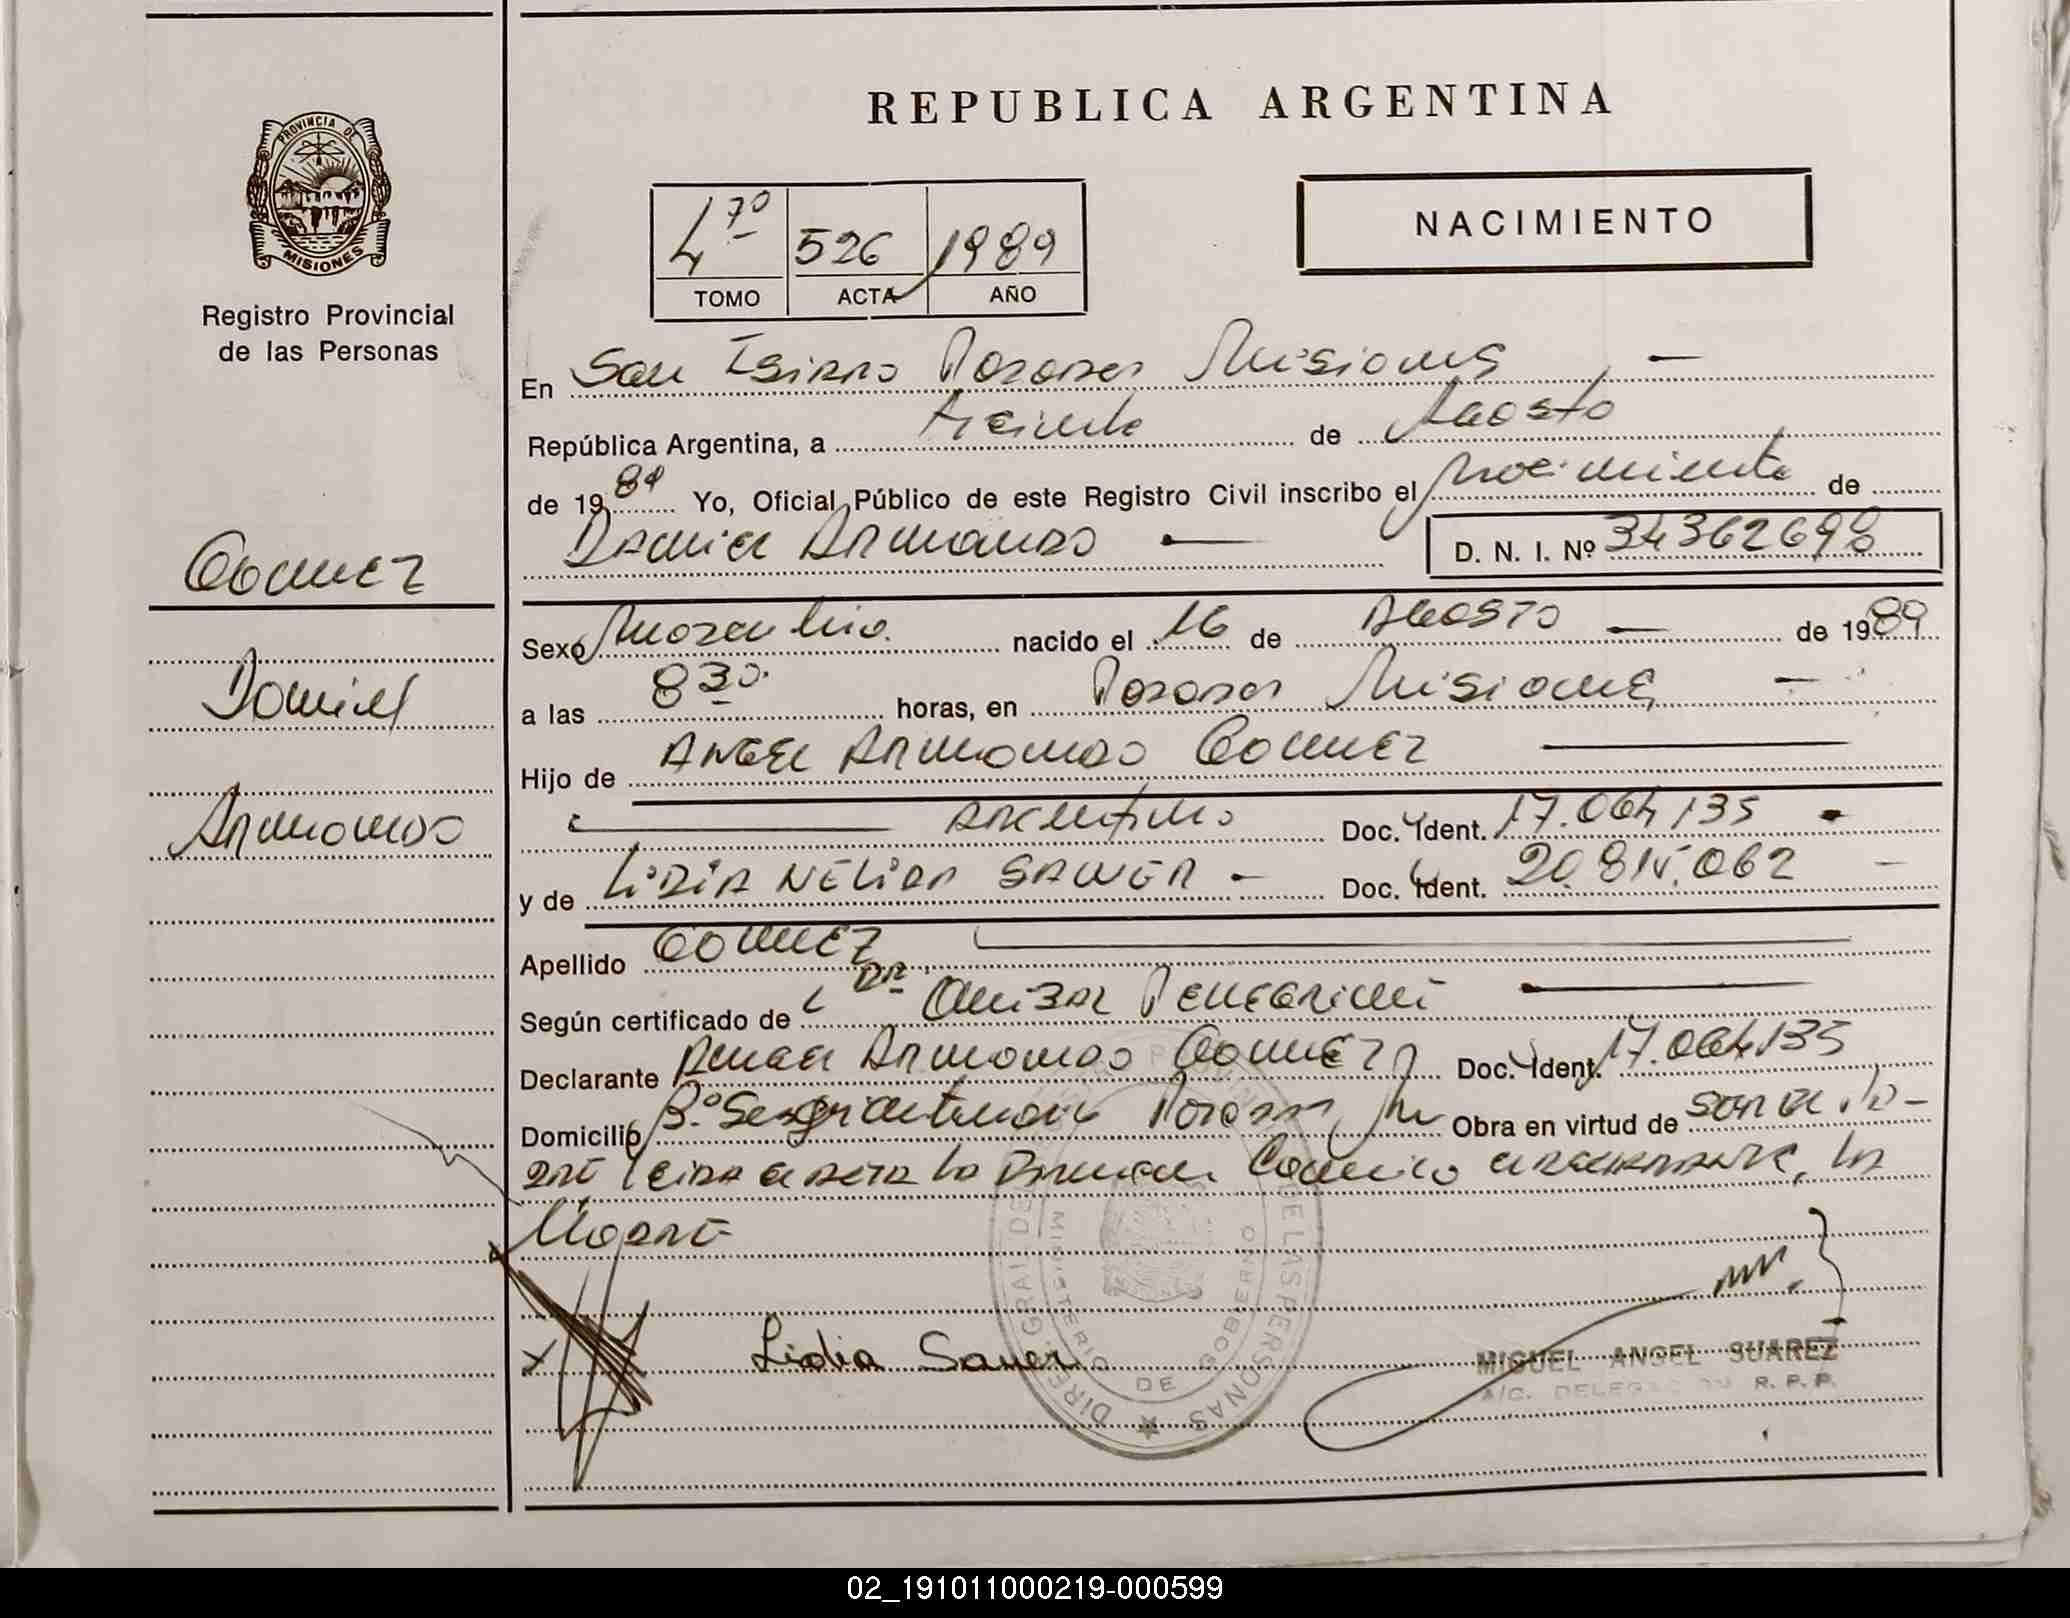 REPUBLICA ARGENTINA
PROVINCIA DE
MISIONES
Registro Provincial
de las Personas
4 7º 526 1989
TOMO ACTA AÑO
NACIMIENTO
En San Isidro Posadas Misiones
República Argentina, a treinta de Agosto
de 1989 Yo, Oficial Público de este Registro Civil inscribo el nacimiento de
Daniel Armando D. N. I. Nº 34362698
Gomez
Daniel
Armando
Sexo Masculino nacido el 16 de Agosto de 1989
a las 8 30 horas, en Posadas Misiones
Hijo de Angel Armando Gomez
Argentino Doc. Ident. 17.064.135
y de Lidia Nelida Sawer Doc. Ident. 20.815.062
Apellido Gomez
Según certificado de Dr
Declarante Angel Armando Gomez Doc. Ident. 17.064.135
Domicilio Bº Posadas Obra en virtud de
leida el acta la
Madre
Lidia Sawer
MIGUEL ANGEL SUAREZ
A/C. DELEGACION R. P. P.
MINISTERIO DE GOBIERNO
02_191011000219-000599